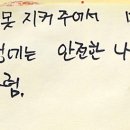 못 지켜 주어서
에는 안전한 나
럼.